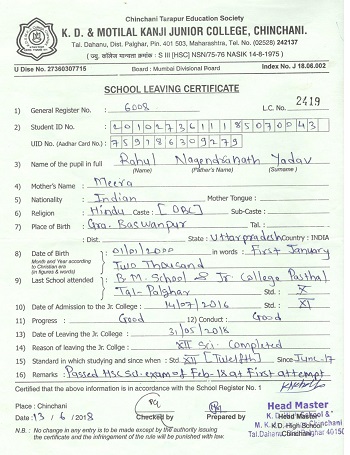 Chinchani Tarapur Education Society
K. D. & MOTILAL KANJI JUNIOR COLLEGE, CHINCHANI.
Tal. Dahanu, Dist. Palghar, Pin. 401 503, Maharashtra, Tel. No. (02528) 242137
S III [HSC] NSN/75-76 NASIK 14-8-1975 )
U Dise No. 27360307715 Board : Mumbai Divisional Board Index No. J 18.06.002
SCHOOL LEAVING CERTIFICATE
1) General Register No. : 6008 L.C. No. 2419
2) Student ID No. : 2010273611185070043
UID No. (Aadhar Card No.) : 759186309279
3) Name of the pupil in full Rahul Nagendranath Yadav
(Name) (Father's Name) (Surname)
4) Mother's Name : Meera
5) Nationality : Indian Mother Tongue :
6) Religion : Hindu Caste : [OBC] Sub-Caste :
7) Place of Birth : Gra. Baswanpur Tal. :
: Dist. State : Uttarpradesh Country : INDIA
8) Date of Birth : 01/01/2000 in words : First January
Month and Year according to Christian era (in figures & words) Two Thousand
9) Last School attended : B.M. School & Jr. College Pasthal
Tal-Palghar Std : X
10) Date of Admission to the Jr. College : 14/07/2016 Std : XI
11) Progress : Good 12) Conduct : Good
13) Date of Leaving the Jr. College : 31/05/2018
14) Reason of leaving the Jr. College : XII Sci. Completed
15) Standard in which studying and since when : Std XII [Twelfth] Since June-17
16) Remarks : Passed HSC Sci. exam of Feb-18 at First attempt
Certified that the above information is in accordance with the School Register No. 1
Place : Chinchani
Date : 13 / 6 / 2018 Checked by Prepared by Head Master
K. D. High School &
M. K. Jr. College
Tal. Dahanu, Dist. Palghar 40150
N.B. : No change in any entry is to be made except by the authority issuing the certificate and the infringement of the rule will be punished with law.